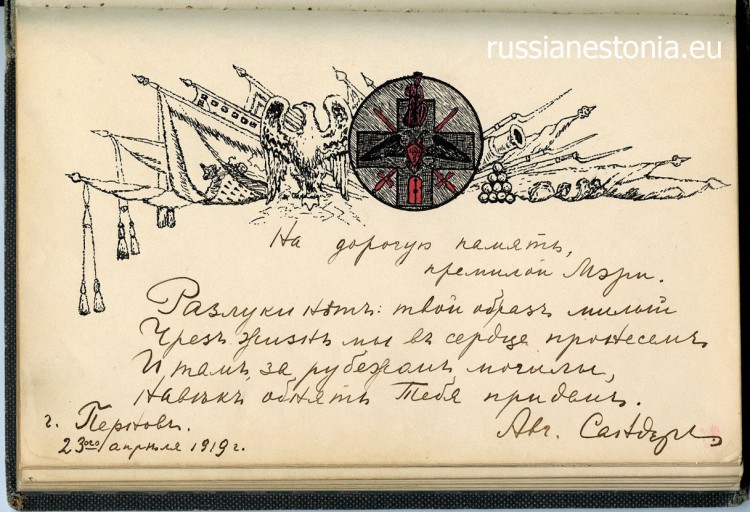 russianestonia.eu
На дорогую память,
премилой Мэри.
Разлуки нѣтъ: твой образъ милый
Чрезъ жизнь мы въ сердце пронесемъ
И тамъ, за рубежомъ могилы,
Навѣкъ обнять Тебя придемъ.
г. Перновъ.
23ого апрѣля 1919 г.
Авг.